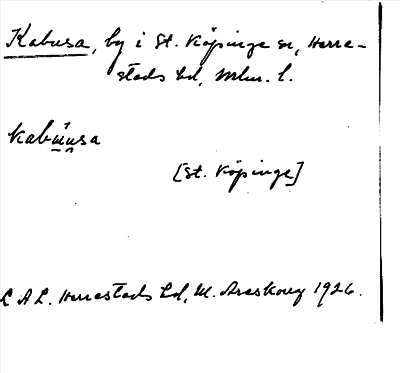 Kabusa, by i St. Köpinge sn, Herre-
stads hd, Mlm. l.
kabúusa
[St. Köpinge]
L A L. Herrestads hd, M. Areskoug 1926.